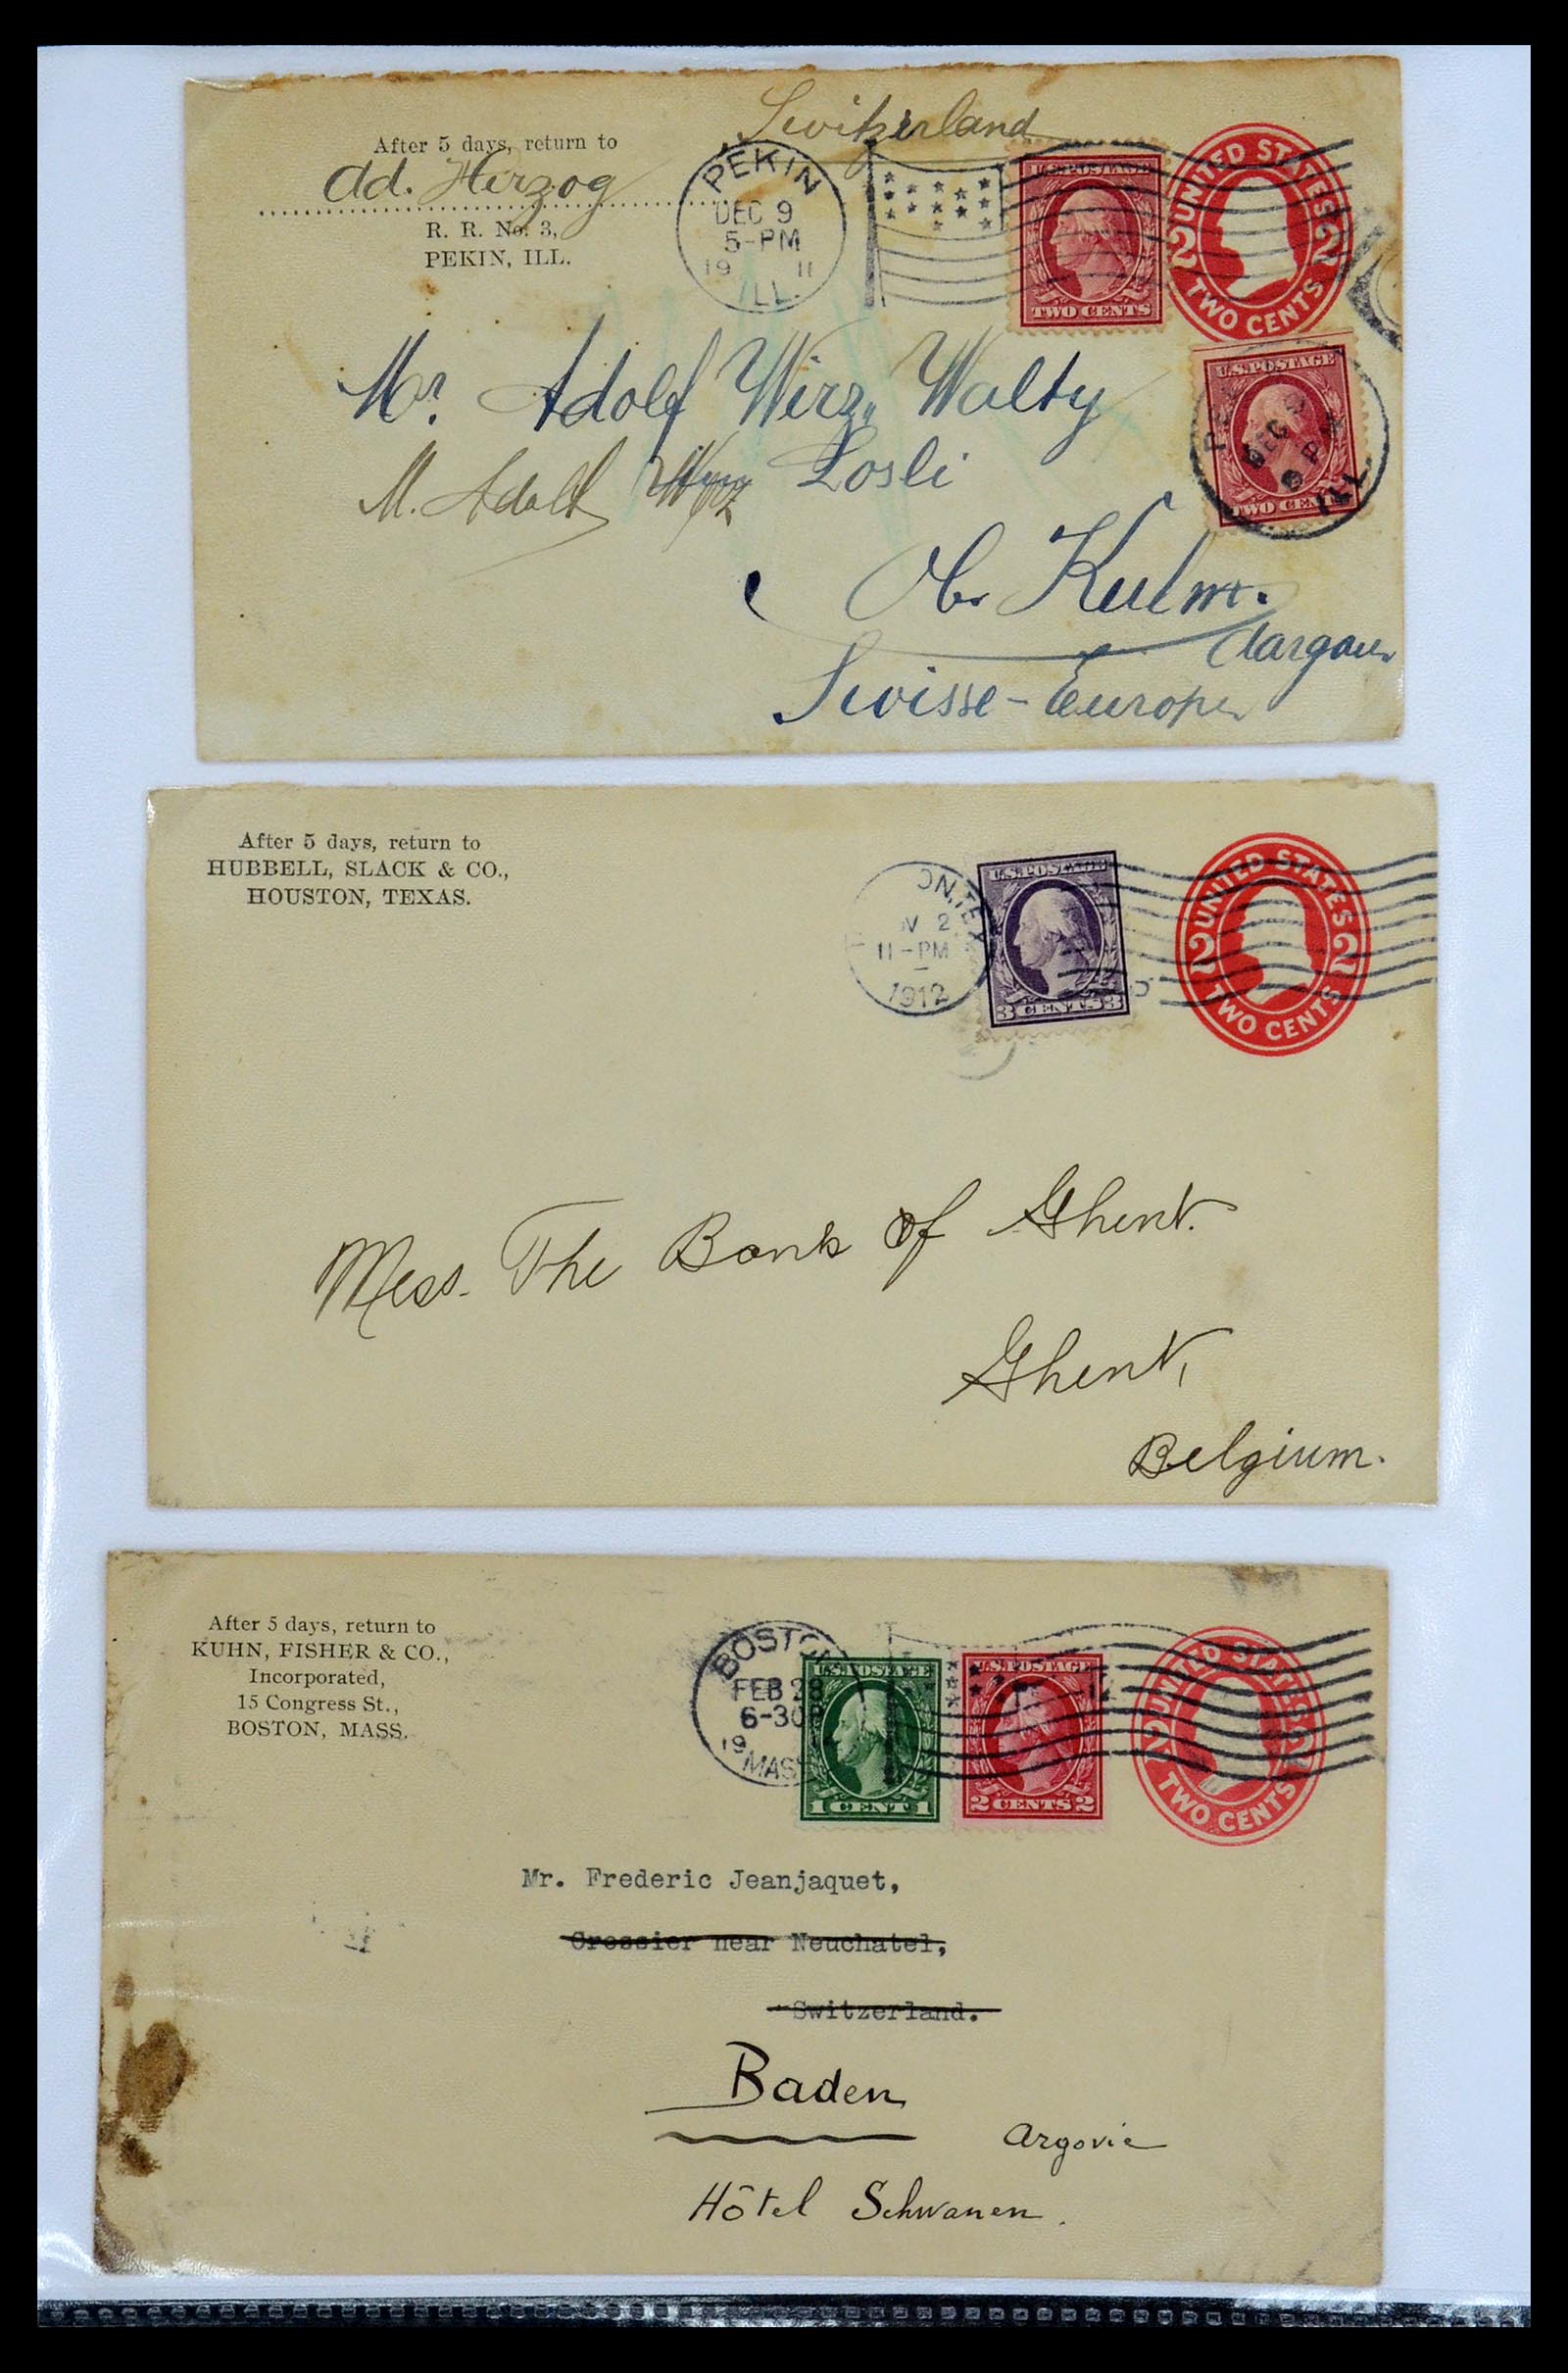 Switzerland
After 5 days, return to
Ad. Herzog
R. R. No. 3,
PEKIN, ILL.
PEKIN
DEC 9
5-PM
19 11
ILL.
U.S. POSTAGE
TWO CENTS
UNITED STATES
2 2
TWO CENTS
U.S. POSTAGE
TWO CENTS
DEC 9
ILL
Mr. Adolf Wirz, Walty
M. Adolf Wirz Losli
Ob. Kulm.
Aargau
Swisse-Europe
After 5 days, return to
HUBBELL, SLACK & CO.,
HOUSTON, TEXAS.
ON, TEX
OV 2
11-PM
1912
U.S. POSTAGE
3 CENTS 3
UNITED STATES
2 2
TWO CENTS
Mess. The Bank of Ghent.
Ghent,
Belgium.
After 5 days, return to
KUHN, FISHER & CO.,
Incorporated,
15 Congress St.,
BOSTON, MASS.
BOSTON
FEB 28
6-30P
19
MASS
U.S. POSTAGE
1 CENT 1
U.S. POSTAGE
2 CENTS 2
UNITED STATES
2 2
TWO CENTS
Mr. Frederic Jeanjaquet,
Cressier near Neuchatel,
Switzerland.
Baden
Argovie
Hôtel Schwanen.